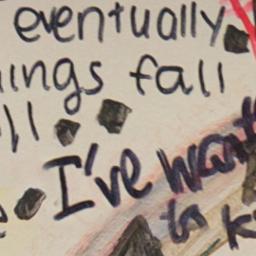 eventually
ings fall
ll
I've want
to k